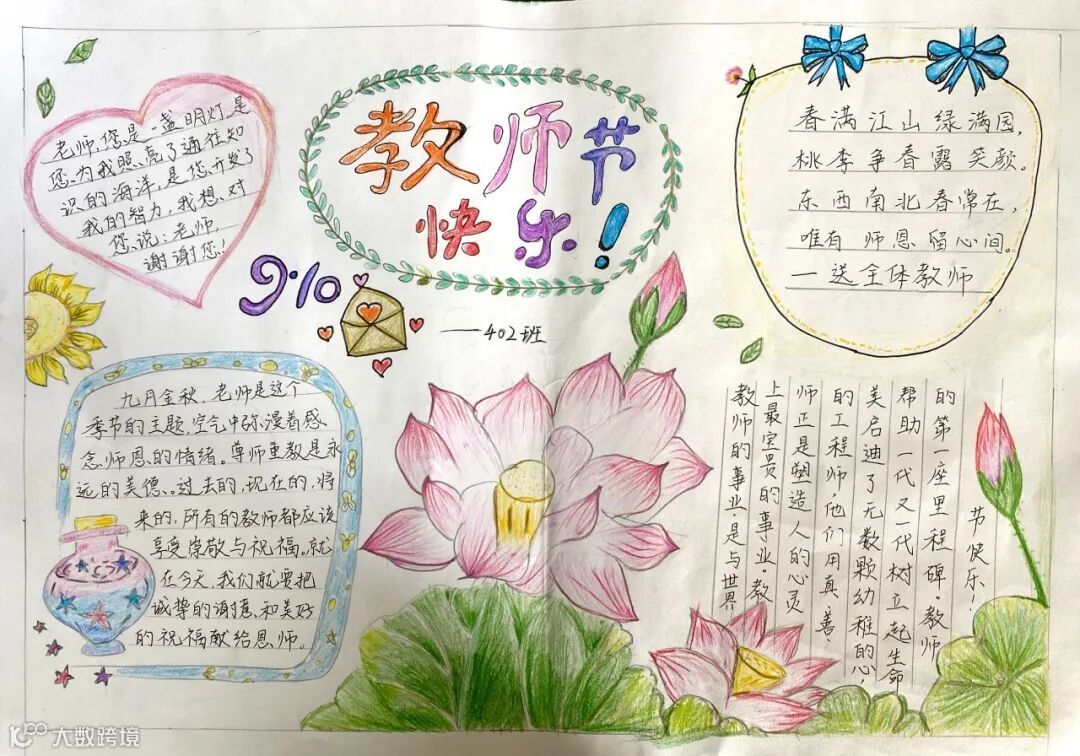 教师节
快乐!
老师,您是一盏明灯,是
您,为我照亮了通往知
识的海洋,是您,开发了
我的智力,我想,对
您说:老师,
谢谢您!
9·10
——402班
春满江山绿满园,
桃李争春露笑颜。
东西南北春常在,
唯有师恩留心间。
—送全体教师
九月金秋,老师是这个
季节的主题,空气中弥漫着感
念师恩的情绪。尊师重教是永
远的美德。过去的,现在的,将
来的,所有的教师都应该
享受崇敬与祝福。就
在今天,我们就要把
诚挚的谢意,和美好
的祝福献给恩师。
教师的事业,是与世界
上最宝贵的事业,教
师正是塑造人的心灵
的工程师,他们用真,善,
美启迪了无数颗幼稚的心,
帮助一代又一代树立起生命
的第一座里程碑,教师
节快乐!
大数跨境